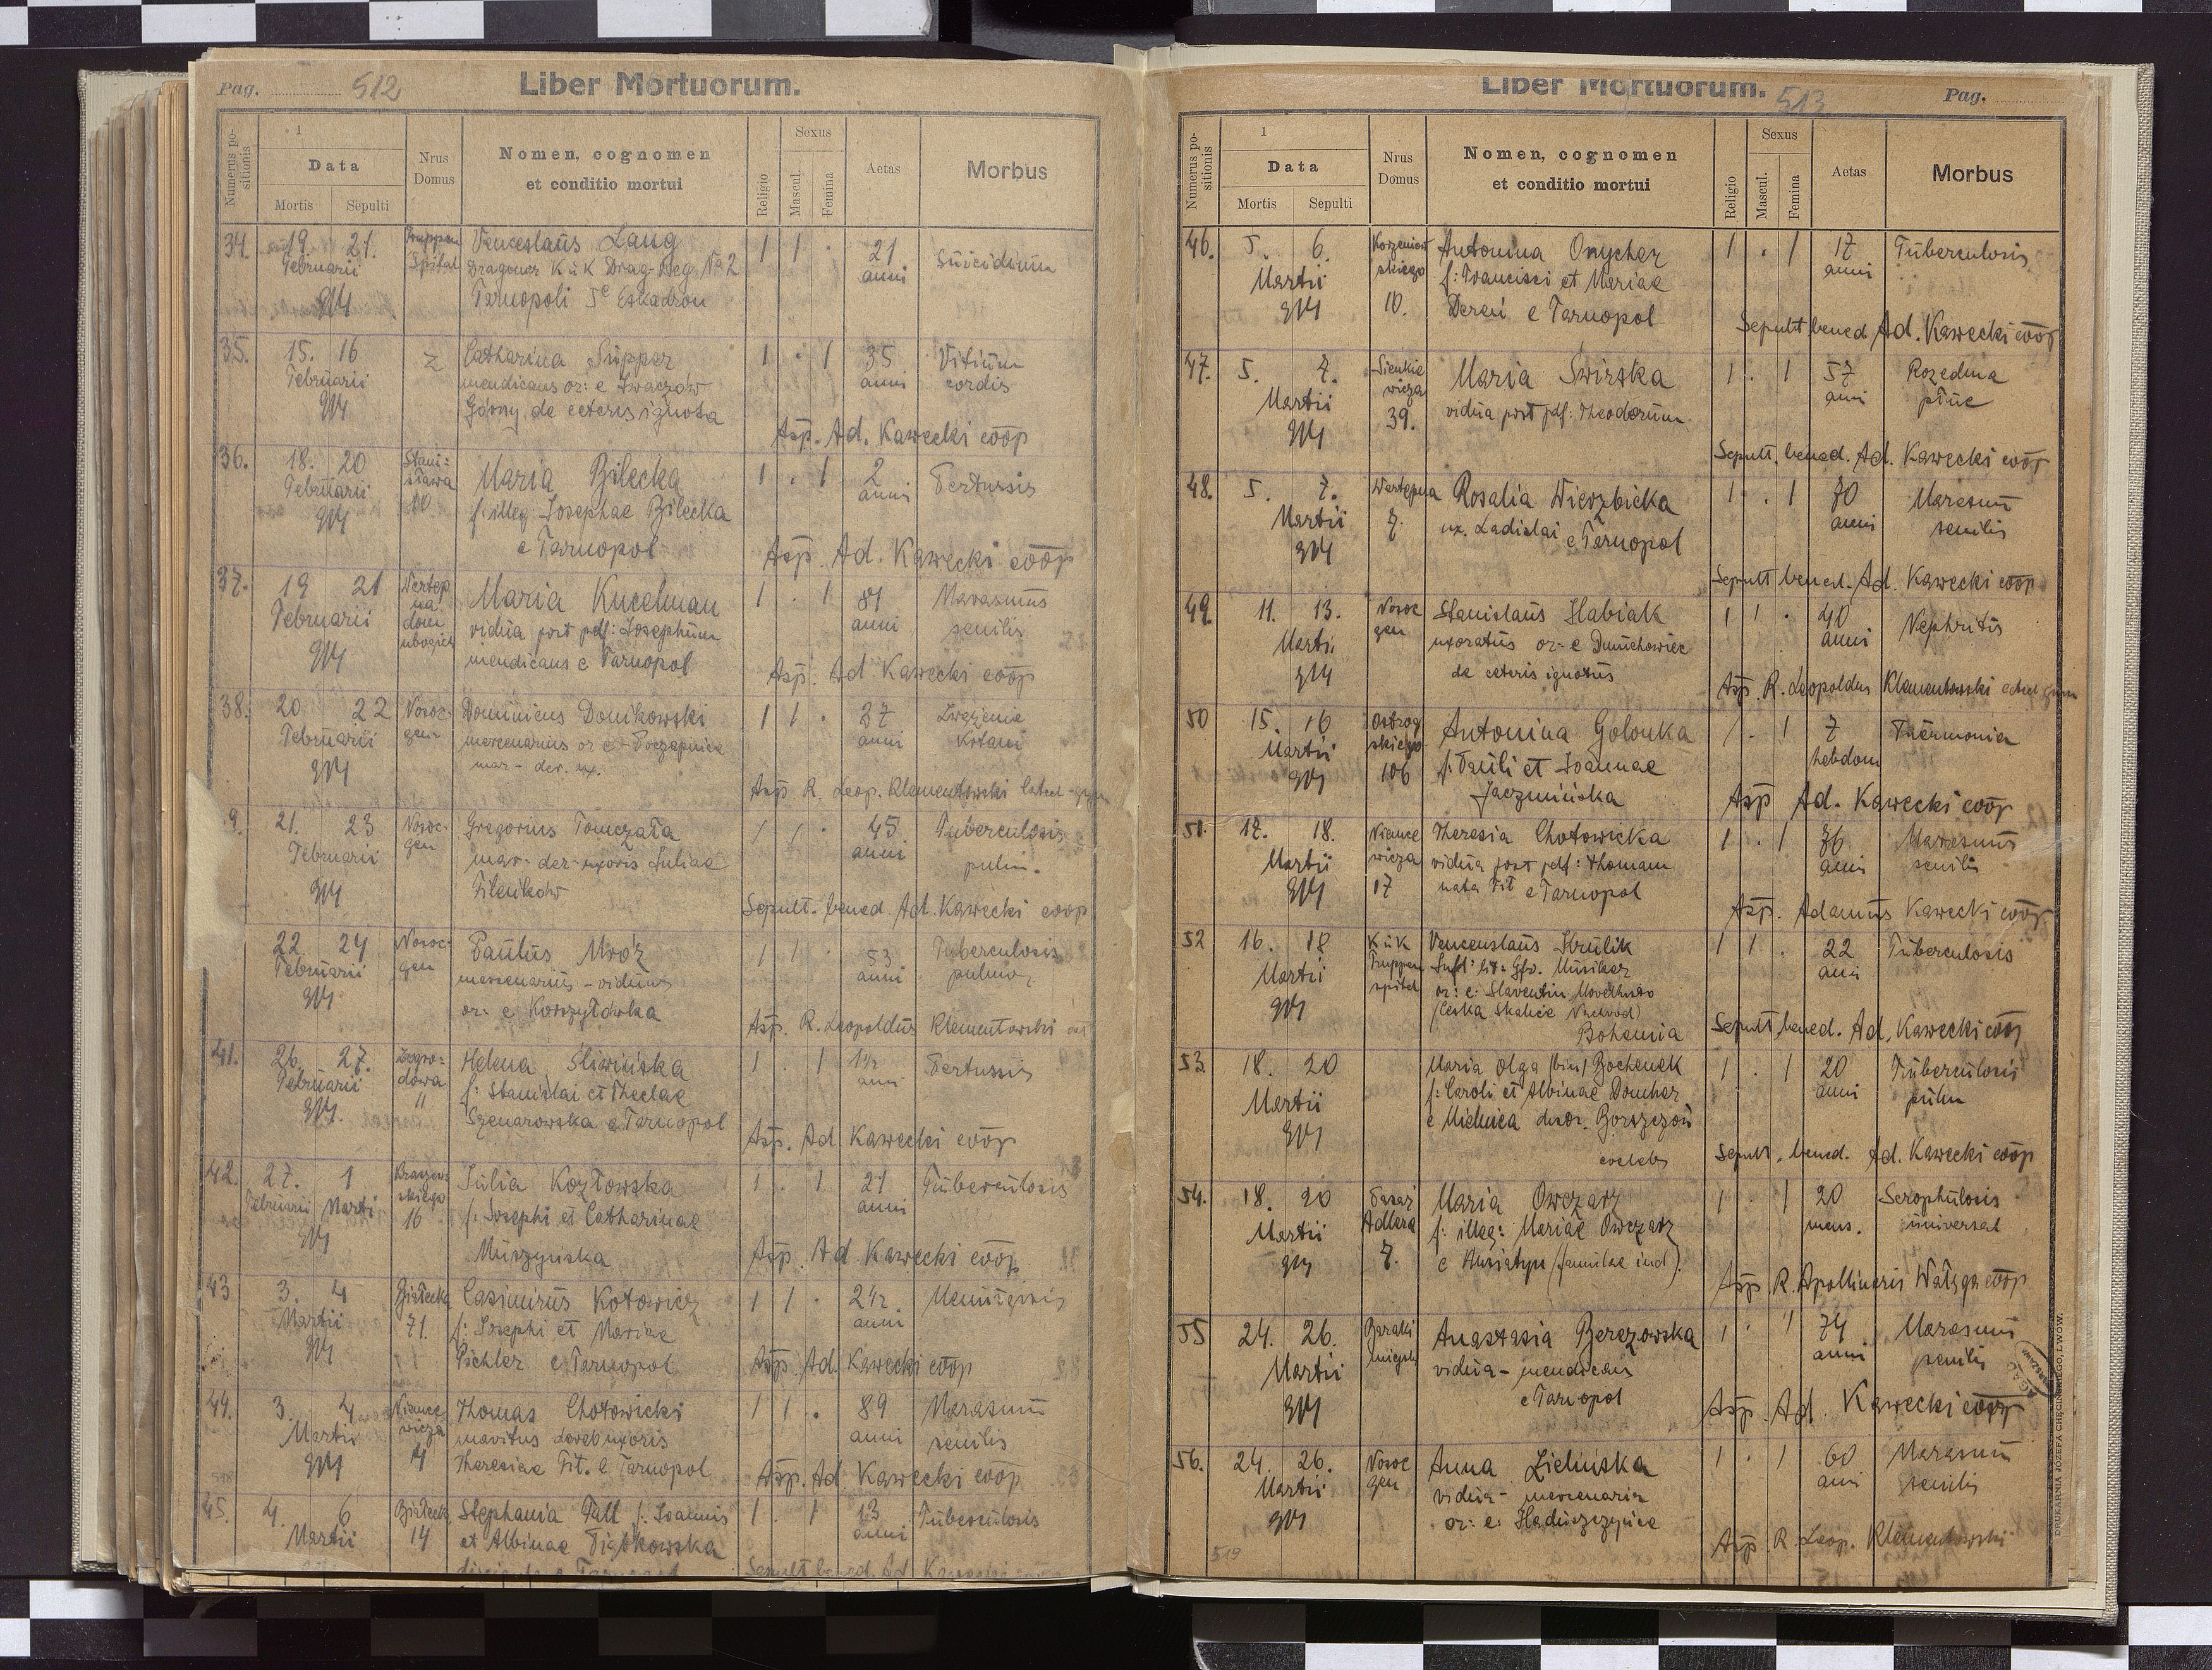 Pag. 512
Liber Mortuorum.
Numerus positionis
1
Data
Mortis Sepulti
Nrus Domus
Nomen, cognomen
et conditio mortui
Religio
Sexus
Mascul.
Femina
Aetas
Morbus
34. 19. 21. Truppen Venceslaüs Lang 1 1 · 21 Süicidium
Februarii Spital Dragoner K ü K Drag-Reg No 2 anni
914 Tarnopoli 5e Eskadron
35. 15. 16 Z Catharina Supper 1 · 1 35 Vitiüm
Februarii mendicans or: e Iwaczów anni cordis
914 Górny de ceteris ignota
Asp. Ad. Kawecki coop
36. 18. 20 Stani- Maria Bilecka 1 · 1 2 Pertussis
Februarii sława f: illeg. Josephae Bilecka anni
914 10 e Tarnopol
Asp. Ad. Kawecki coop
37. 19 21 Wertep Maria Kucelman 1 · 1 81 Marasmus
Februarii na vidüa post pdf: Josephüm anni senilis
914 dom ubogich mendicans e Tarnopol
Asp. Ad Kawecki coop
38. 20 22 Nosoc- Dominicus Donikowski 1 1 · 37
Februarii gen mercenarius or e anni
914 mar- der. ux.
Asp R. Leop. Klementowski
9. 21. 23 Nosoc- Gregorius Tomczała 1 1 · 45 Tuberculosis
Februarii gen mar- der- uxoris Juliae anni pulm.
914 Filenków
Sepult. bened Ad. Kawecki coop
22 24 Nosoc- Paulus Mróz 1 1 · 53 Tuberculosis
Februarii gen mercenariüs - vidüus anni pulmo,
914 or: e Korszyłówka
Asp. R. Leopoldüs Klementowski
41. 26. 27. Zagro- Helena Śliwińska 1 · 1 1½ Pertussis
Februarii dowa f: Stanislai et Theclae anni
914. 11 Szenarowska e Tarnopol
Asp. Ad. Kawecki coop
42. 27. 1 Kraszew- Jülia Kozłowska 1 · 1 21 Tüberculosis
Februarii Marti skiego f: Josephi et Catharinae anni
914 16 Müszyńska
Asp. Ad. Kawecki coop
43 3. 4 Białecka Casimirüs Kotowicz 1 1 · 2½
Martii 71. f: Josephi et Mariae anni
914 Pichler e Tarnopol
Asp. Ad. Kawecki coop
44. 3. 4. Niemce- Thomas Chotowicki 1 1 · 89 Marasmü
Martii wicza maritus uxoris anni senilis
914 14 Theresiae Fit. e Tarnopol
Asp. Ad Kawecki coop
45. 4. 6 Białeck. Stephania Fall f: Joannis 1 · 1 13 Tüberculosis
Martii 14 et Albinae Piątkowska anni
Sepult bened. Ad Kawecki
Liber Mortuorum. 513
Pag.
Numerus positionis
1
Data
Mortis Sepulti
Nrus Domus
Nomen, cognomen
et conditio mortui
Religio
Sexus
Mascul.
Femina
Aetas
Morbus
46. 5. 6. Korzeniow Antonina Onycher 1 · 1 17 Tüberculosis
Martii skiego f: Francisci et Mariae anni
914 10. Dereń e Tarnopol
Sepult bened Ad. Kawecki coop
47. 5. 7. Sienkie Maria Świrska 1 · 1 57 Rozedma
Martii wicza vidüa post pdf: Theodorüm anni płüc
914 39.
Sepult. bened. Ad. Kawecki coop
48. 5. 7. Wertepna Rosalia Wierzbicka 1 · 1 70 Marasmü
Martii 7. ux. Ladislai e Tarnopol anni senilis
914
Sepult bened. Ad. Kawecki coop
49. 11. 13. Nosoc Stanislaüs Habiak 1 1 · 40 Nephritis
Marti. gen uxoratüs or- e Dünichowiec anni
914 de ceteris ignotüs
Asp. R. Leopoldus Klementowski
50 15. 16 Ostrog Antonina Golonka 1 · 1 7 Pneümonia
Martii skiego f: Paüli et Joannae hebdom
914 106 Jaczmińska
Asp Ad. Kawecki coop
51. 17. 18. Niemce Theresia Chotowicka 1 · 1 76 Marasmü
Martii wicza vidüa post pdf: Thomam anni senilis
914 17 nata Fit e Tarnopol
Asp. Adamüs Kawecki coop
52 16. 18 K ü K Venceslaüs Krülik 1 1 · 22 Tüberculosis
Martii Truppen Gfr. Müsiker anni
914 spital or: e: Slaventin
(Ceska Skalice Nachod)
Bohemia
Sepult bened. Ad. Kawecki coop
53 18. 20 Maria Olga (bin) Bochenek 1 · 1 20 Tüberculosis
Martii f: Caroli et Albinae Domher anni pülm
914 e Mielnica Borszczów
coelebs
Sepult. bened. Ad. Kawecki coop
54. 18. 20 Pasaż Maria Owczarz 1 · 1 20 Scrophülosis
Martii Adlera f: illeg: Mariae Owczarz mens. üniversal
914 7. e Husiatyn (famülae ind)
Asp R. Apollinaris Wałęga coop
55 24. 26. Baraki Anastasia Berezowska 1 · 1 74 Marasmü
Martii miejsk vidüa - mendicans anni senilis
914 e Tarnopol
Asp. Ad. Kawecki coop
56. 24. 26. Nosoc Anna Zielińska 1 · 1 60 Marasmü
Martii gen vidüa - mercenaria anni senilis
914 or: e: Hladüszczyńce
Asp R. Leop. Klementowski
519
DRUKARNIA JÓZEFA CHĘCIŃSKIEGO, LWÓW.